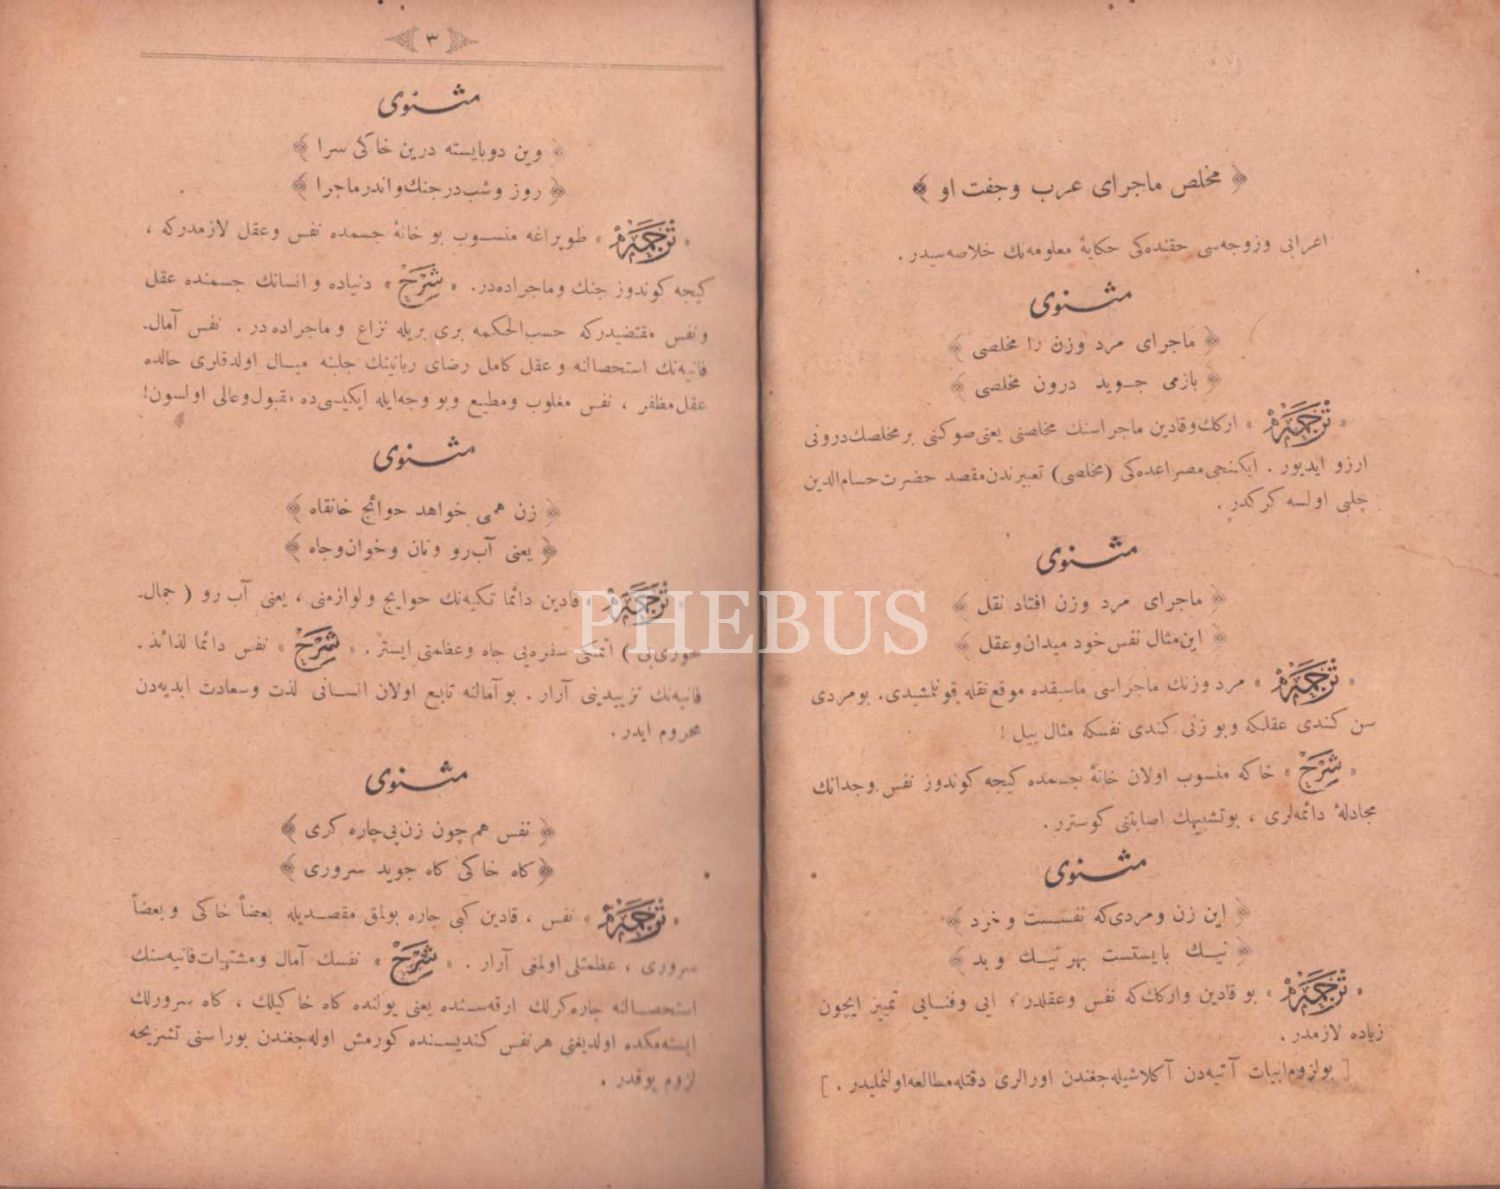 ﴿ مخلص ماجرای عرب وجفت او ﴾
اعرابی وزوجه‌سی حقنده‌کی حکایۀ معلومه‌نك خلاصه‌سیدر .
مثنوی
﴿ ماجرای مرد وزن را مخلصی ﴾
﴿ بازمی جوید درون مخلصی ﴾
« ترجمه » ارکك‌وقادین ماجراسنك مخلصنی یعنی‌صوکنی برمخلصك‌درونی
ارزو ایدیور . ایکنجی‌مصراعده‌کی (مخلصی) تعبیرندن‌مقصد حضرت‌حسام‌الدین
چلبی اولسه کرکدر .
مثنوی
﴿ ماجرای مرد وزن افتاد نقل ﴾
﴿ این‌مثال نفس‌خود میدان‌وعقل ﴾
« ترجمه » مرد وزنك ماجراسی ماسبقده موقع‌نقله قونلمشیدی. بومردی
سن کندی عقلکه وبو زنی کندی نفسکه مثال بیل !
« شرح » خاکه منسوب اولان خانۀ جسمده کیجه کوندوز نفس‌وجدانك
مجادلۀ دائمه‌لری ، بوتشبیهك اصابتنی کوسترر .
مثنوی
﴿ این زن ومردی‌که نفسست و خرد ﴾
﴿ نیك بایستست بهرنیك وبد ﴾
« ترجمه » بو قادین وارکك‌که نفس وعقلدر ؛ ایی وفنایی تمییز ایچون
زیاده لازمدر .
[ بولزوم‌ابیات آتیه‌دن آکلاشیله‌جغندن اورالری دقتله‌مطالعه‌اولنملیدر . ]
٣
مثنوی
﴿ وین دوبایسته درین خاکی سرا ﴾
﴿ روز وشب‌درجنك‌واندرماجرا ﴾
« ترجمه » طوپراغه منسوب بو خانۀ جسمده نفس وعقل لازمدرکه ،
کیجه کوندوز جنك وماجراده‌در. « شرح » دنیاده وانسانك جسمنده عقل
ونفس مقتضیدرکه حسب‌الحکمه بری بریله نزاع وماجراده‌در . نفس آمال‌ـ
فانیه‌نك استحصالنه وعقل کامل رضای ربانینك جلبنه میال اولدقلری حالده
عقل‌مظفر ، نفس مغلوب ومطیع وبو وجه‌ایله ایکیسی‌ده مقبول‌وعالی اولسون!
مثنوی
﴿ زن همی خواهد حوائج خانقاه ﴾
﴿ یعنی آب‌رو ونان وخوان‌وجاه ﴾
« ترجمه » قادین دائما تکیه‌نك حوایج ولوازمنی ، یعنی آب رو ( جمال‌ـ
اتمکی سفره‌یی جاه وعظمتی ایستر . « شرح » نفس دائما لذائذـ
فانیه‌نك تزییدینی آرار . بوآمالنه تابع اولان انسانی لذت وسعادت ابدیه‌دن
محروم ایدر .
مثنوی
﴿ نفس هم‌چون زن‌پی‌چاره کری ﴾
﴿ کاه خاکی کاه جوید سروری ﴾
« ترجمه » نفس ، قادین کبی چاره بولمق مقصدیله بعضاً خاکی وبعضاً
سروری ، عظمتلی‌اولمغی آرار . « شرح » نفسك آمال ومشتهیات‌فانیه‌سنك
استحصالنه چاره‌کرلك ارقه‌سنده یعنی یولنده کاه خاکیلك ، کاه سرورلك
ایسته‌مکده اولدیغنی هرنفس کندیسنده کورمش اوله‌جغندن بوراسنی تشریحه
لزوم یوقدر .
PHEBUS